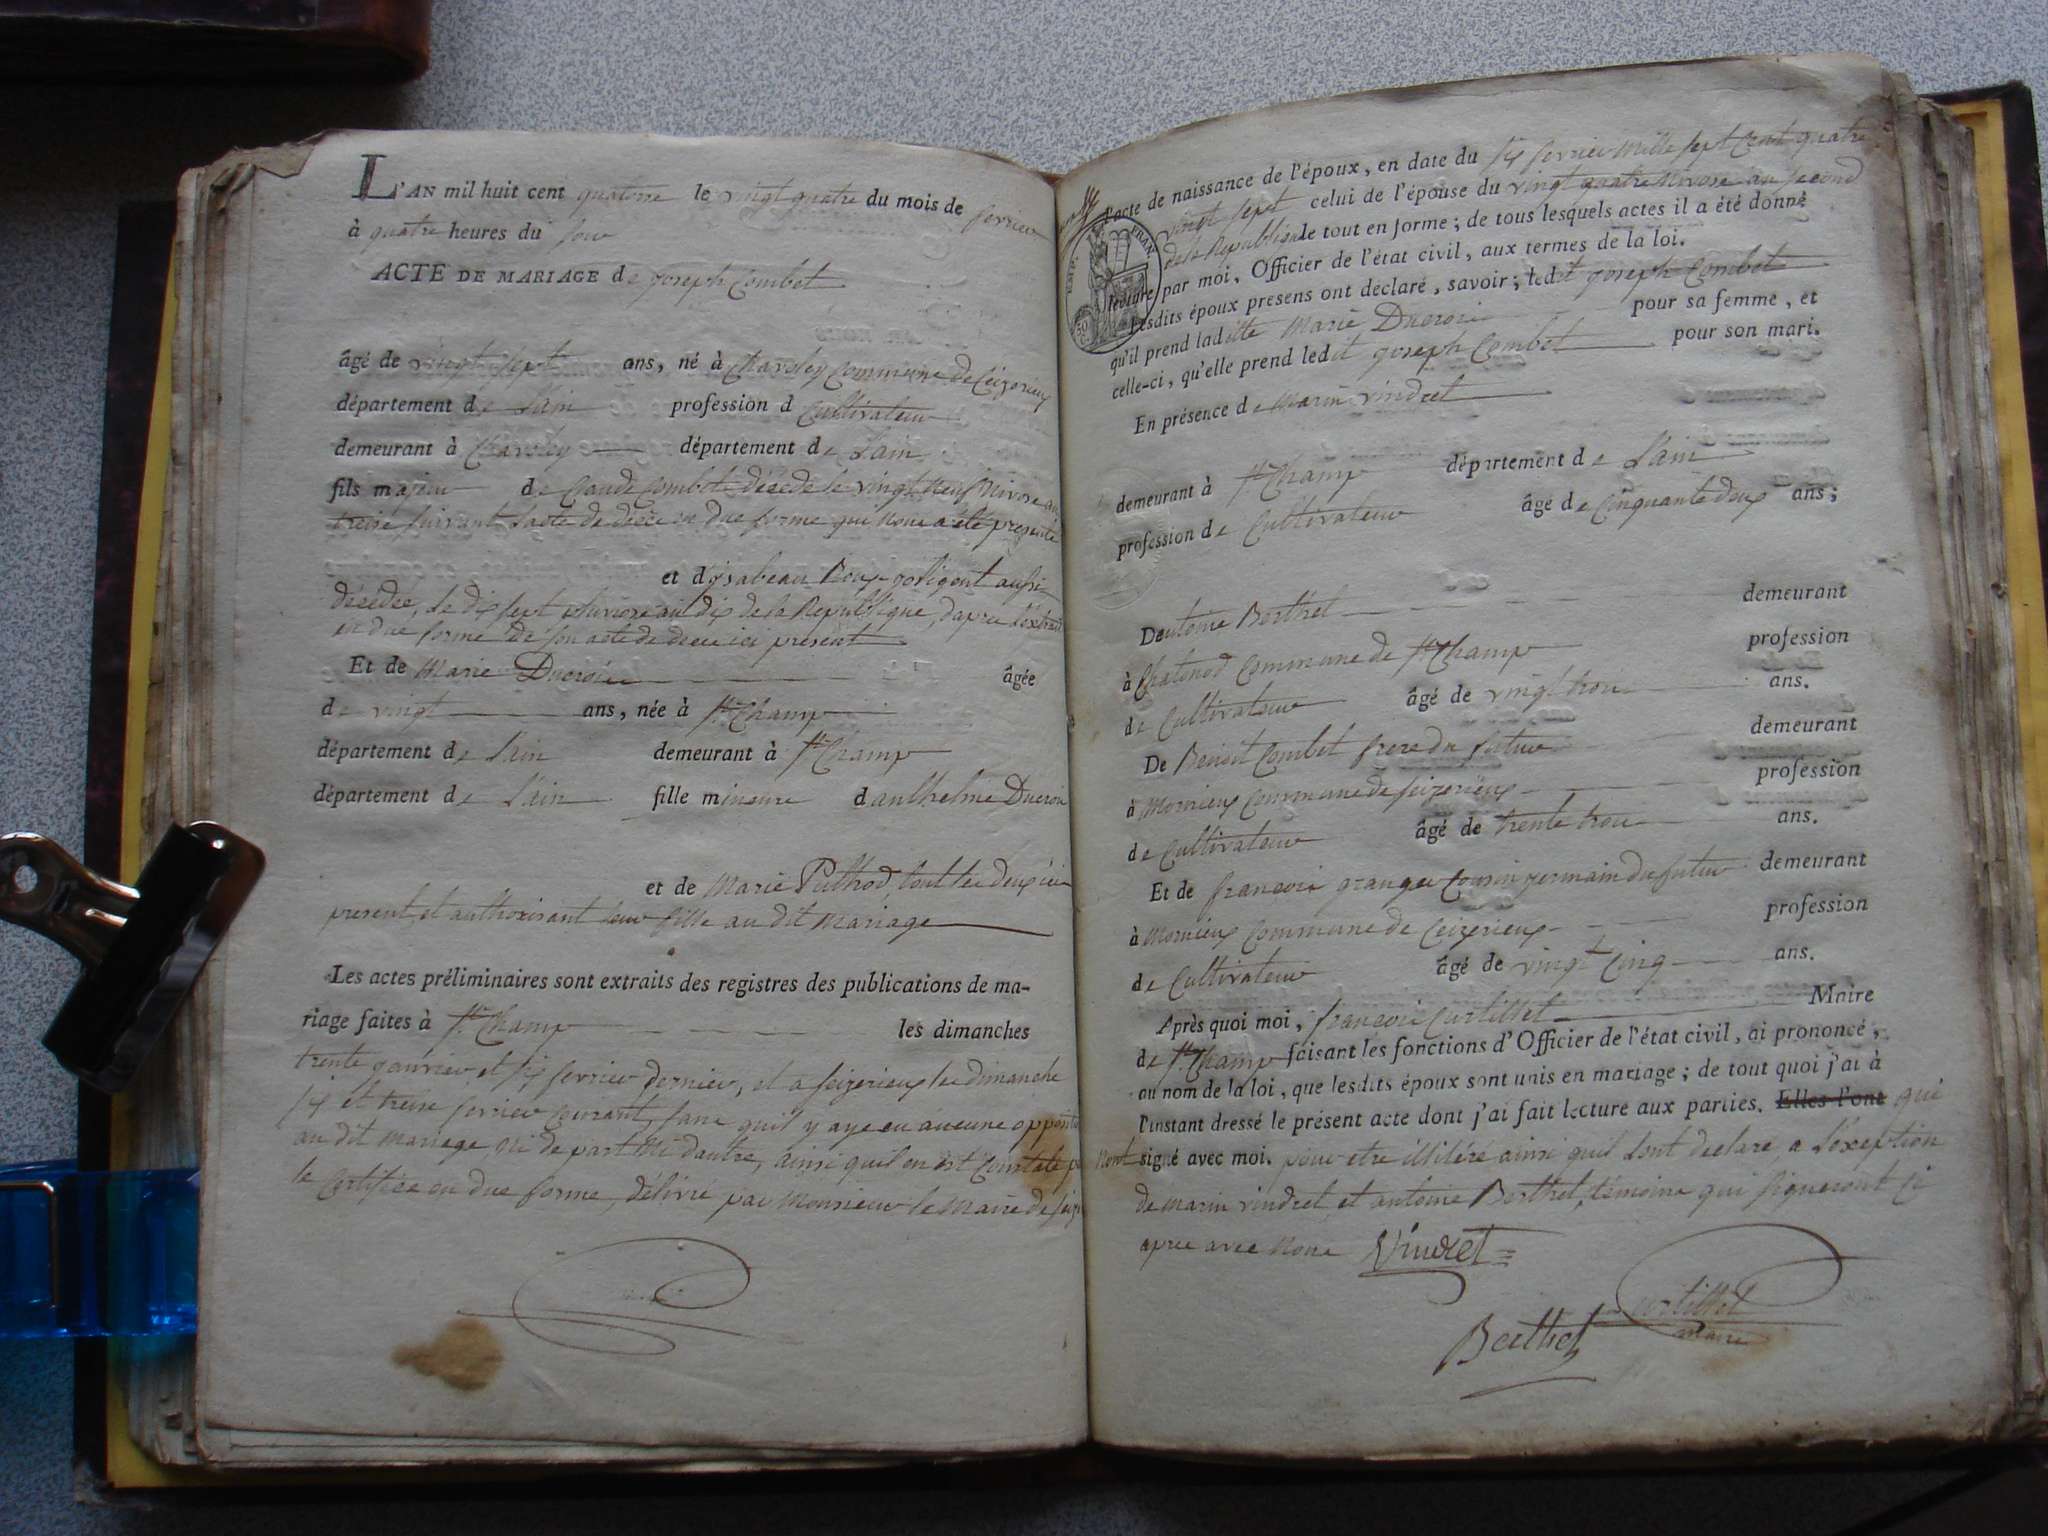 L'AN mil huit cent quatorze le vingt quatre du mois de fevrier
à quatre heures du soir
ACTE DE MARIAGE de joseph Combet
âgé de vingt sept ans, né à Charoley Commune de Ceizerieux
département de Lain profession d Cultivateur
demeurant à Charoley département de Lain
fils majeur de Claude Combet décédé le vingt neuf Nivose an
treise suivant lacte de décè en due forme qui nous a été presenté
et dysabeau Roux goligont aussi
décédée, le dix sept pluviose an dix de la Republique, daprès Lextrait
en due forme de son acte de décè ici présent
Et de Marie Ducroix âgée
de vingt ans, née à St Champ
département de Lain demeurant à St Champ
département de Lain fille mineure danthelme Ducroix
et de Marie Puthod, tout les deux ici
present et authorisant leur fille au dit Mariage
Les actes préliminaires sont extraits des registres des publications de ma-
riage faites à St Champ les dimanches
trente janvier et six fevrier dernier, et a Seizerieux les dimanche
six et treise fevrier courant, sans quil y aye eu aucune oppositio
au dit Mariage ni de part Ni dautre, ainsi quil en est Constaté p
le Certificat en due forme, délivré par Monsieur le Maire de Seize
l'acte de naissance de l'époux, en date du six fevrier Mille sept Cent quatre
vingt sept celui de l'épouse du vingt quatre Nivose an second
de la Republique le tout en forme; de tous lesquels actes il a été donné
lecture par moi, Officier de l'état civil, aux termes de la loi.
EMP. FRAN
Lesdits époux presens ont déclaré, savoir; ledit joseph Combet
qu'il prend laditte Marie Ducroix pour sa femme, et
celle-ci, qu'elle prend ledit joseph Combet pour son mari.
En présence de Marin vindret
demeurant à St Champ département de Lain
profession de Cultivateur âgé de Cinquante deux ans;
Dantoine Berthet demeurant
à Chatonod Commune de St Champ profession
de Cultivateur âgé de vingt trois ans.
De Benoit Combet frere du futur demeurant
à Mornieux Commune de Seizerieux profession
de Cultivateur âgé de trente trois ans.
Et de francois granger Cousin germain du futur demeurant
à Mornieux Commune de Ceizerieux profession
de Cultivateur âgé de vingt Cinq ans.
Après quoi moi, francois Curtillet Maire
de St Champ faisant les fonctions d'Officier de l'état civil, ai prononcé,
au nom de la loi, que lesdits époux sont unis en mariage; de tout quoi j'ai à
l'instant dressé le présent acte dont j'ai fait lecture aux parties. Elles l'ont qui
Nont signé avec moi. pour etre illitéré ainsi quil Lont declaré a Lexeption
de marin vindret et antoine Berthet, témoins qui signeront Ci
apres avec Nous Vindret
Curtillet
maire
Berthet